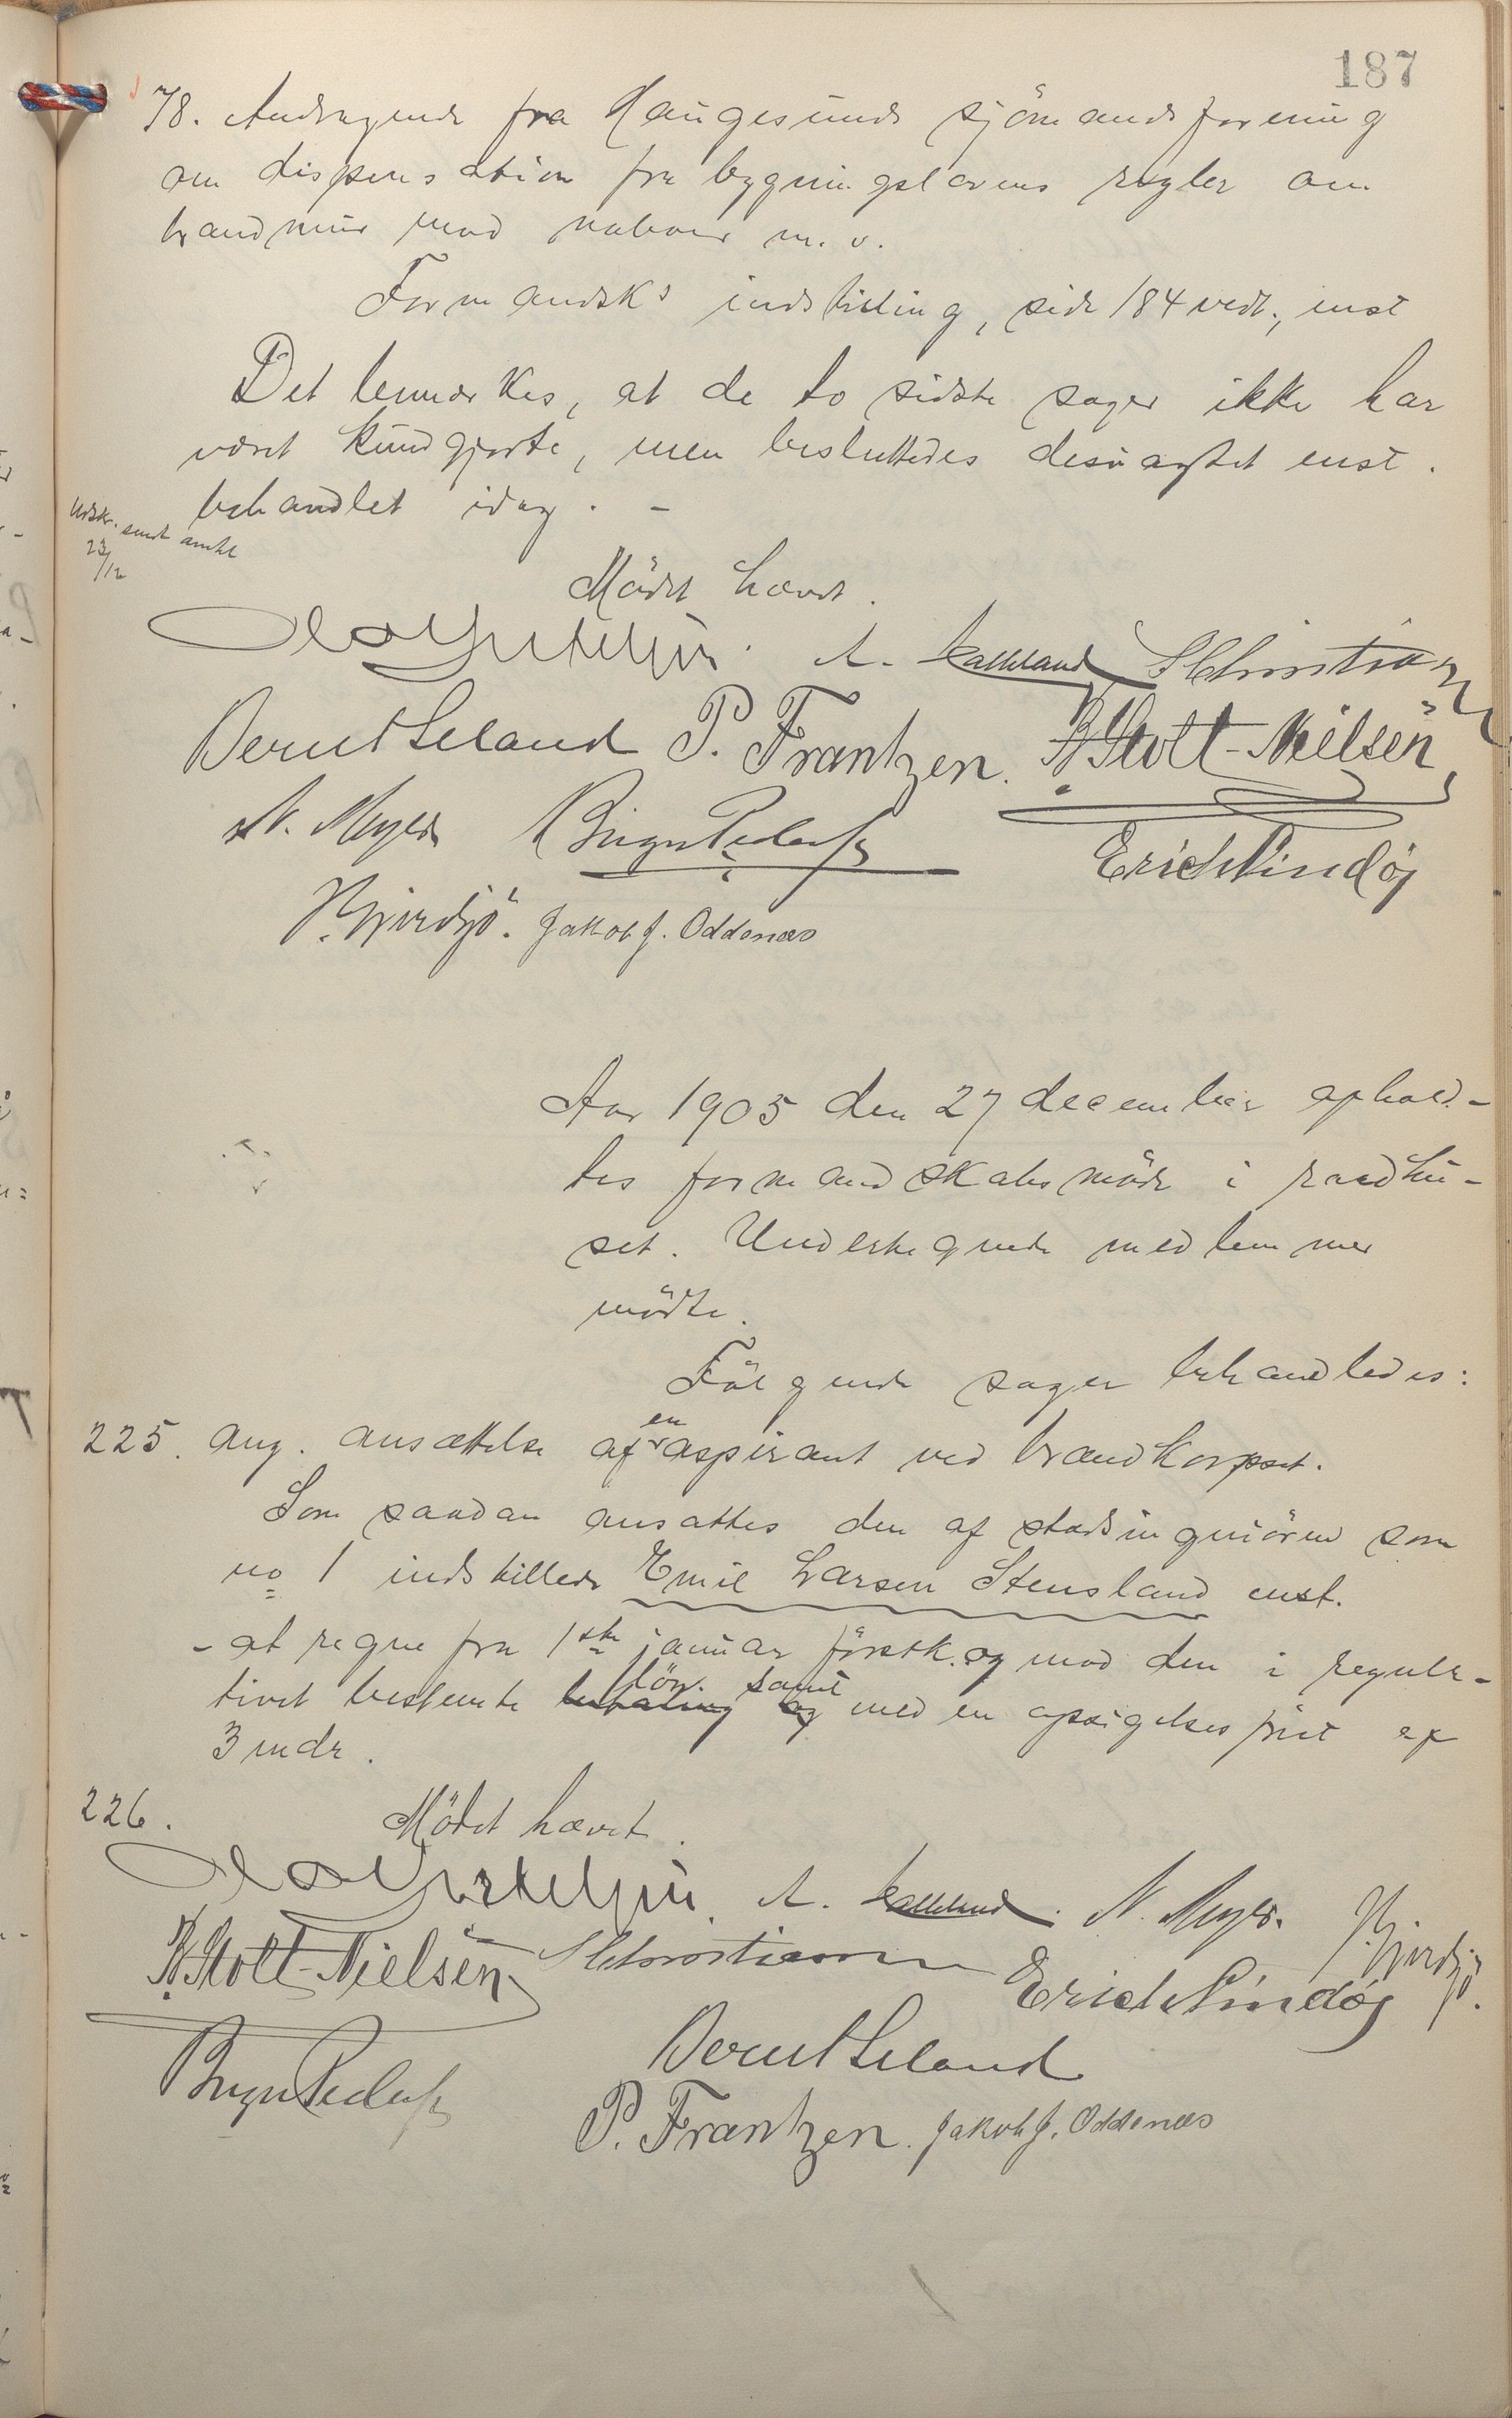 187
78. Andragende fra Haugesunds sjömandsforening
om dispensation fra bygningslovens regler om
brandmur mod naboer m. v.
Formandsks indstilling, side 184 vedt., enst
Det bemærkes, at de to sidste sager ikke har
været kundgjorte, men besluttedes desuagtet enst.
behandlet idag. -
Udskr. sendt amtet
23/12
Mödet hævet.
A. Kalleland S Christiansen
Bernt Leland P. Frantzen. B Stolt-Nielsen
N. Meyer Bryn Pedersen
Erich Lindøj
Jakob J. Oddenæs
Aar 1905 den 27 december afhold-
tes formandskabsmöde i raadhu-
set. Undertegnede medlemmer
mödte.
Fölgende sager behandledes:
225. Ang. ansættelse af en aspirant ved brandkorpset.
Som saadan ansattes den af stadsingeniören som
no 1 indstillede Emil Larsen Stensland enst.
- at regne fra 1ste januar förstk. og mod den i regula-
tivet bestemte betaling lön og samt med en opsigelsesfrist af
3 mdr.
226. Mödet hævet.
A. Kalleland. N. Meyer.
B Stolt-Nielsen S Christiansen Erich Lindøj
Bryn Pedersen Bernt Leland
P. Frantzen. Jakob J. Oddenæs